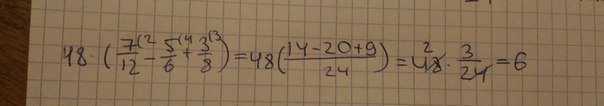 48 · (7/12 (2 − 5/6 (4 + 3/8 (3) = 48((14−20+9)/24) = 48 2 · 3/24 = 6